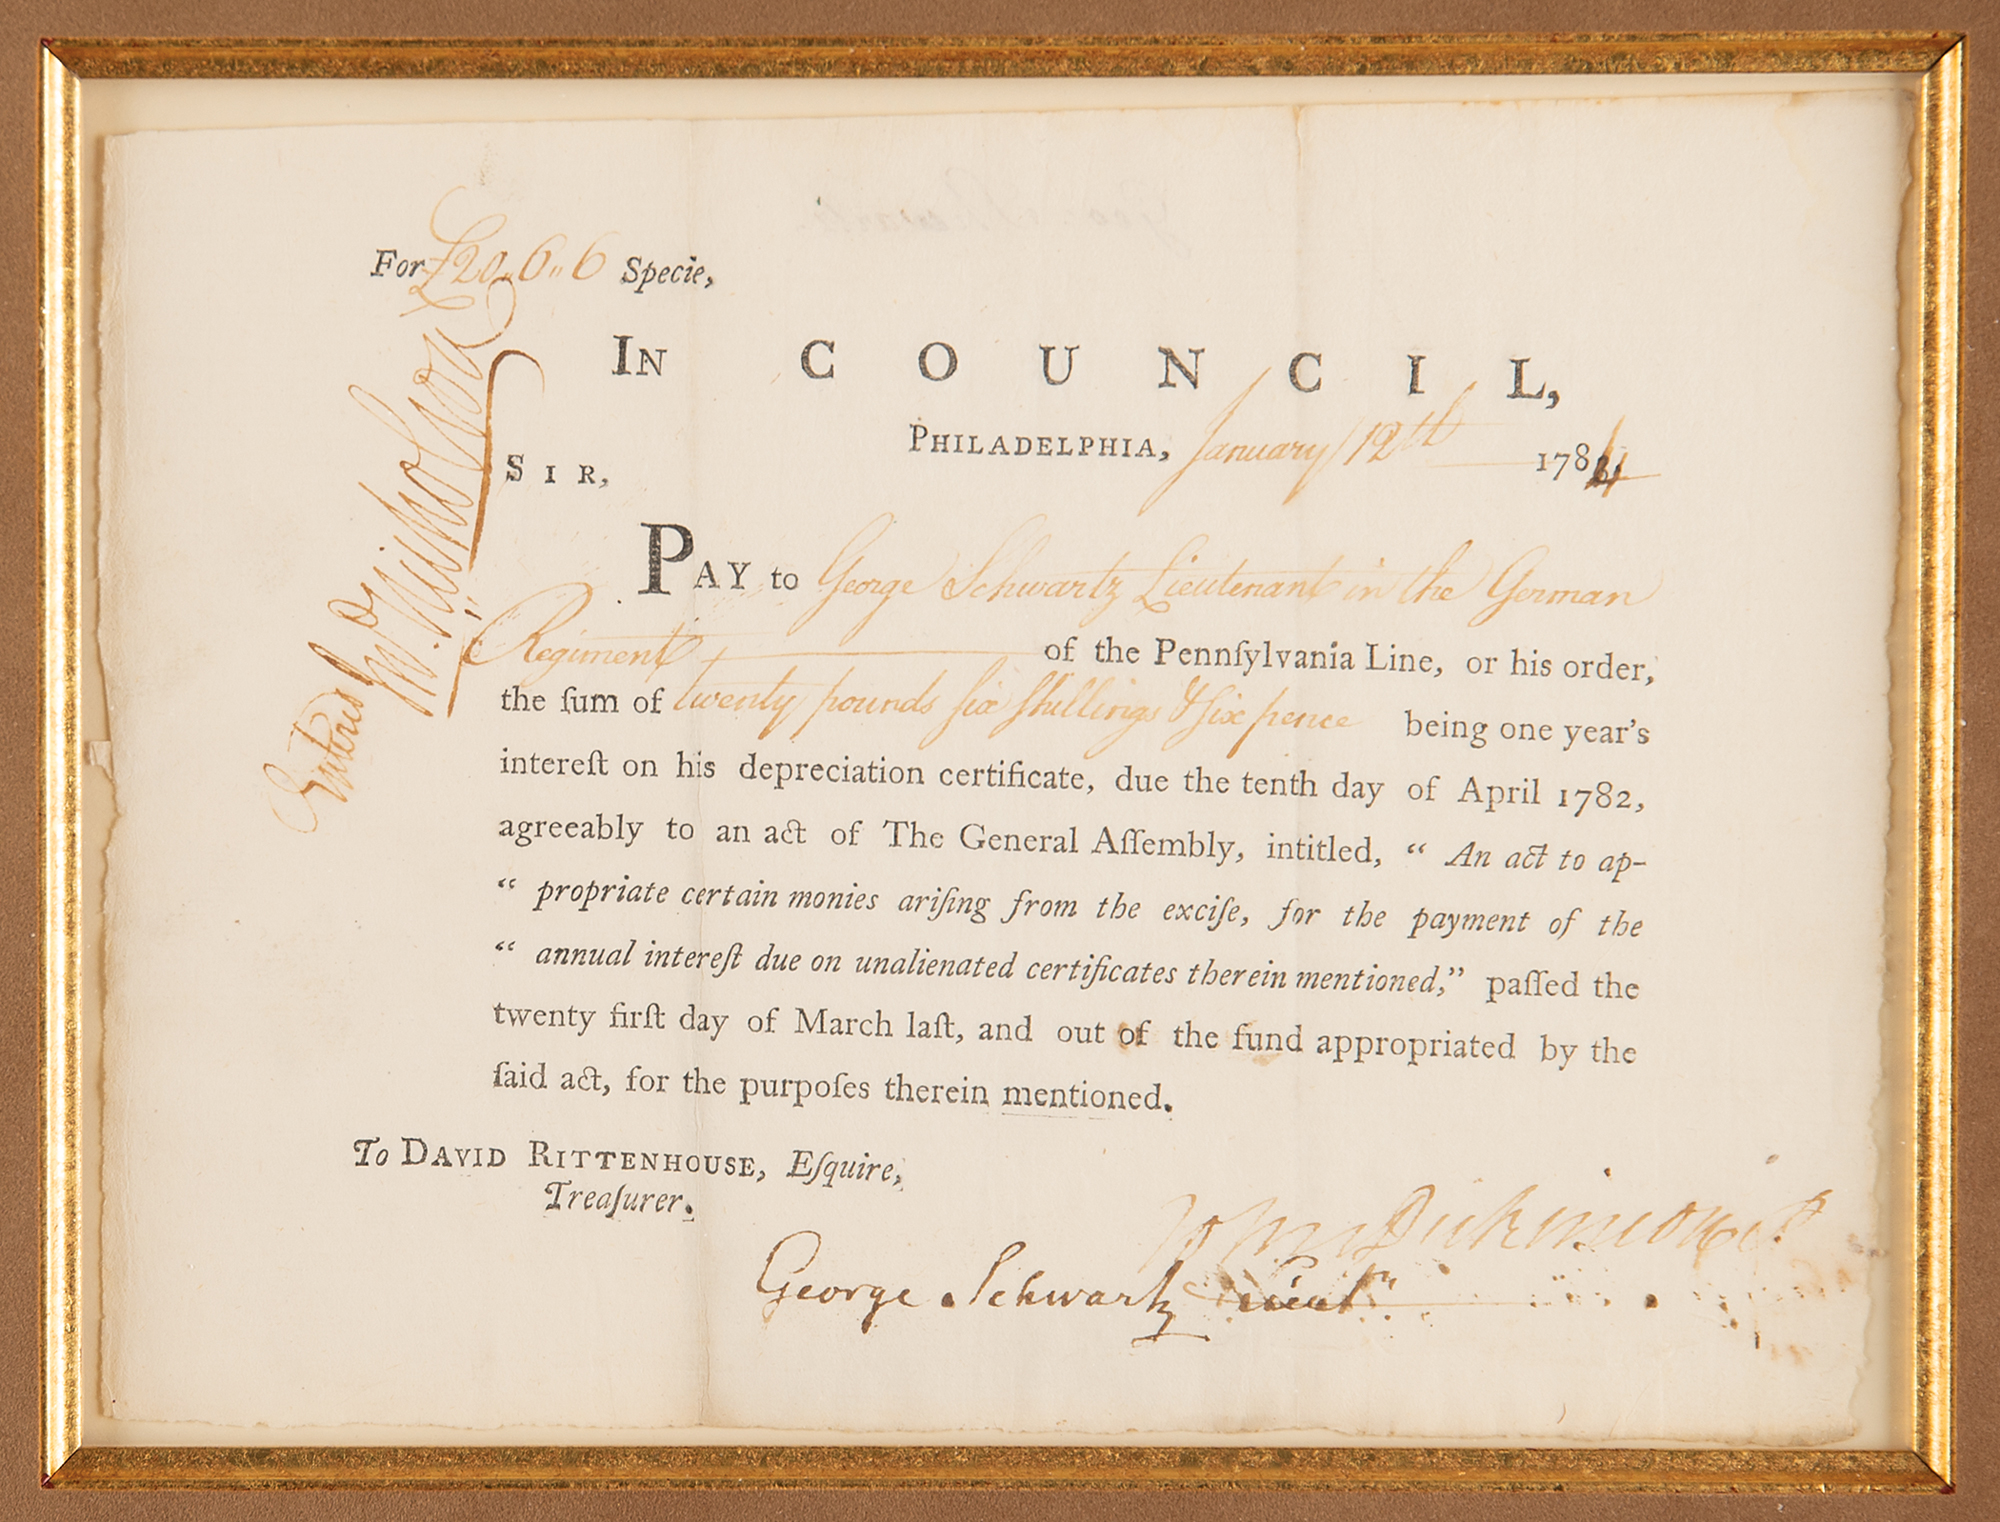 For £20„6„6 Specie,
IN COUNCIL,
PHILADELPHIA, January 12th 1784
SIR,
PAY to George Schwartz Lieutenant in the German
Regiment of the Pennſylvania Line, or his order,
the ſum of twenty pounds ſix ſhillings & ſix pence being one year's
intereſt on his depreciation certificate, due the tenth day of April 1782,
agreeably to an act of The General Aſſembly, intitled, “ An act to ap-
“ propriate certain monies ariſing from the exciſe, for the payment of the
“ annual intereſt due on unalienated certificates therein mentioned,” paſſed the
twenty firſt day of March laſt, and out of the fund appropriated by the
ſaid act, for the purpoſes therein mentioned.
To DAVID RITTENHOUSE, Eſquire,
Treaſurer.
John Dickinson
George Schwartz Lieut
Entered Jn° Nicholson